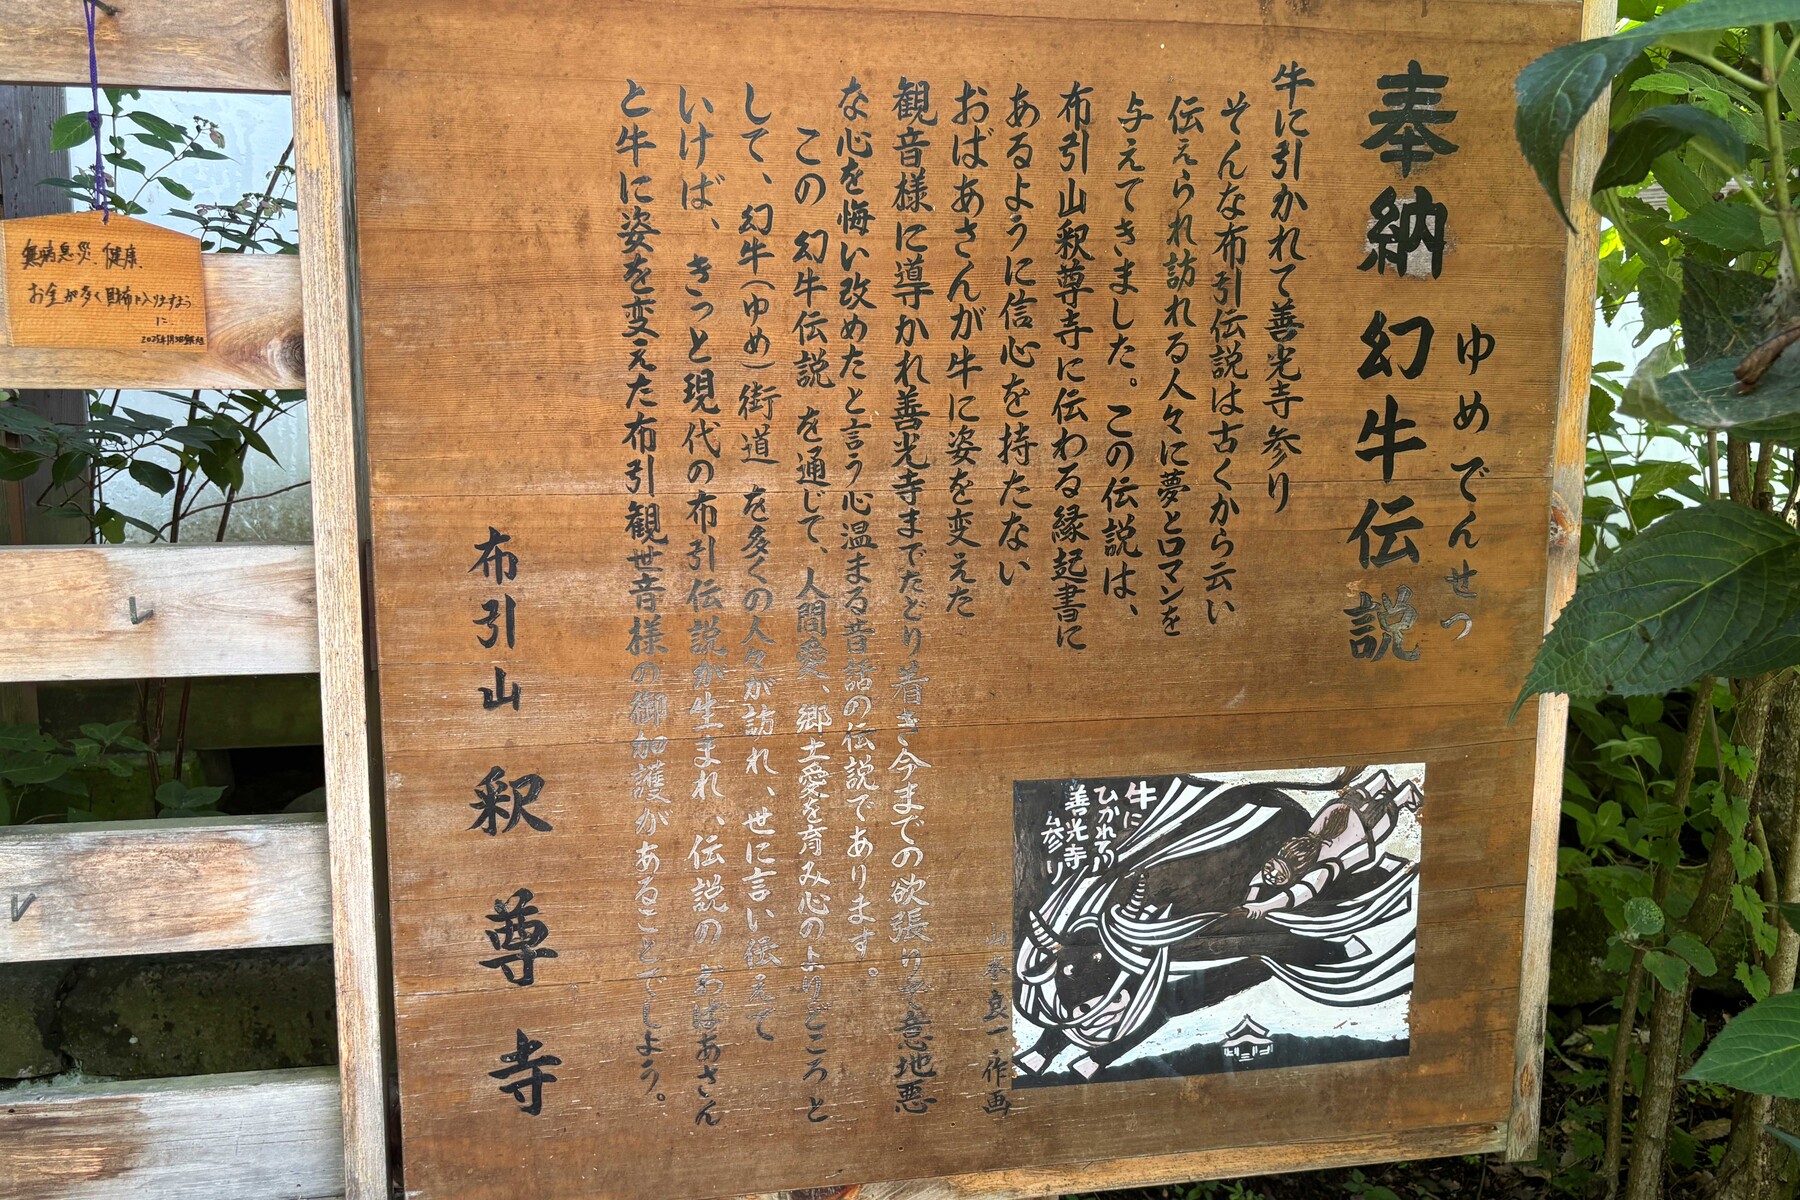 奉納 幻牛伝説
ゆめでんせつ
牛に引かれて善光寺参り
そんな布引伝説は古くから云い
伝えられ訪れる人々に夢とロマンを
与えてきました。この伝説は、
布引山釈尊寺に伝わる縁起書に
あるように信心を持たない
おばあさんが牛に姿を変えた
観音様に導かれ善光寺までたどり着き今までの欲張りで意地悪
な心を悔い改めたと言う心温まる昔話の伝説であります。
この 幻牛伝説 を通じて、人間愛、郷土愛を育み心のよりどころと
して、幻牛(ゆめ)街道 を多くの人々が訪れ、世に言い伝えて
いけば、きっと現代の布引伝説が生まれ、伝説の おばあさん
と牛に姿を変えた布引観世音様の御加護があることでしょう。
布引山 釈尊寺
牛に
ひかれて
善光寺
参り
良一 作画
無病息災 健康
お金が多く財布に入りますよう
に